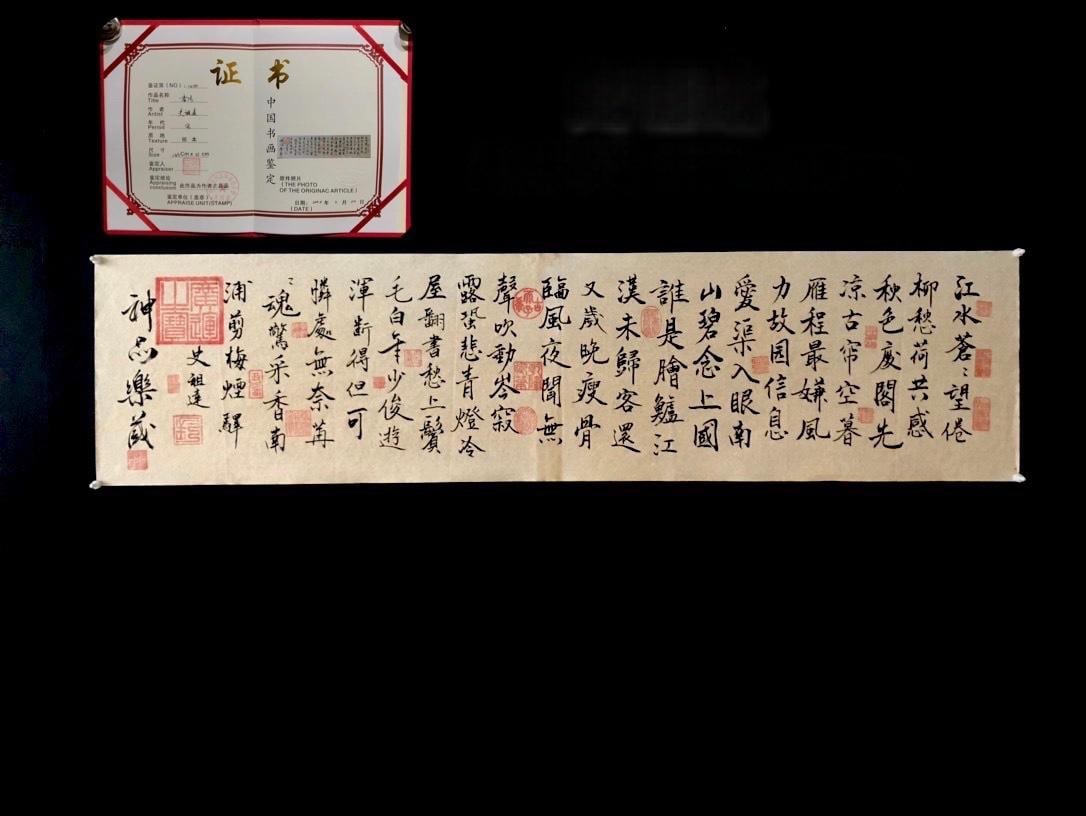 证书
鉴证第（NO）:
作品名称
Title
作者
Artist
年代
Period 宋
质地
Texture 纸本
尺寸
Size cm x cm
鉴定人
Appraiser
鉴定结论
Appraising conclusion 此作品为作者之真品
鉴定单位（盖章）
APPRAISE UNIT(STAMP)
中国书画鉴定
原件照片
(THE PHOTO
OF THE ORIGINAC ARTICLE)
日期: 年 月 日
(DATE)
江水蒼〻望倦
柳愁荷共感
秋色廢閣先
凉古帘空暮
雁程最嫌風
力故园信息
愛渠入眼南
山碧念上國
誰是膾鱸江
漢未歸客還
又歲晚瘦骨
臨風夜聞無
聲吹動岑寂
露蛩悲青燈冷
屋翻書愁上鬢
毛白年少俊遊
渾斷得但可
憐處無奈苒
〻魂驚采香南
浦剪梅煙驛
史祖達
廣運之寶
神品樂藏